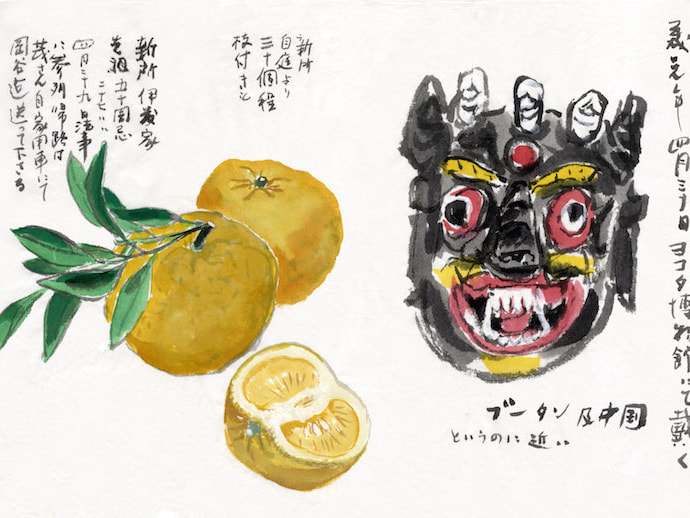 元年 四月三十日 ヨコタ博物館にて戴く
ブータン 及中国
というのに近い
新所
自庭より
三十個程
枝付き
新所 伊藤家
五十回忌
四月二十九日法事
に参列 帰路は
茂さん自家用車にて
岡谷迄送って下さる